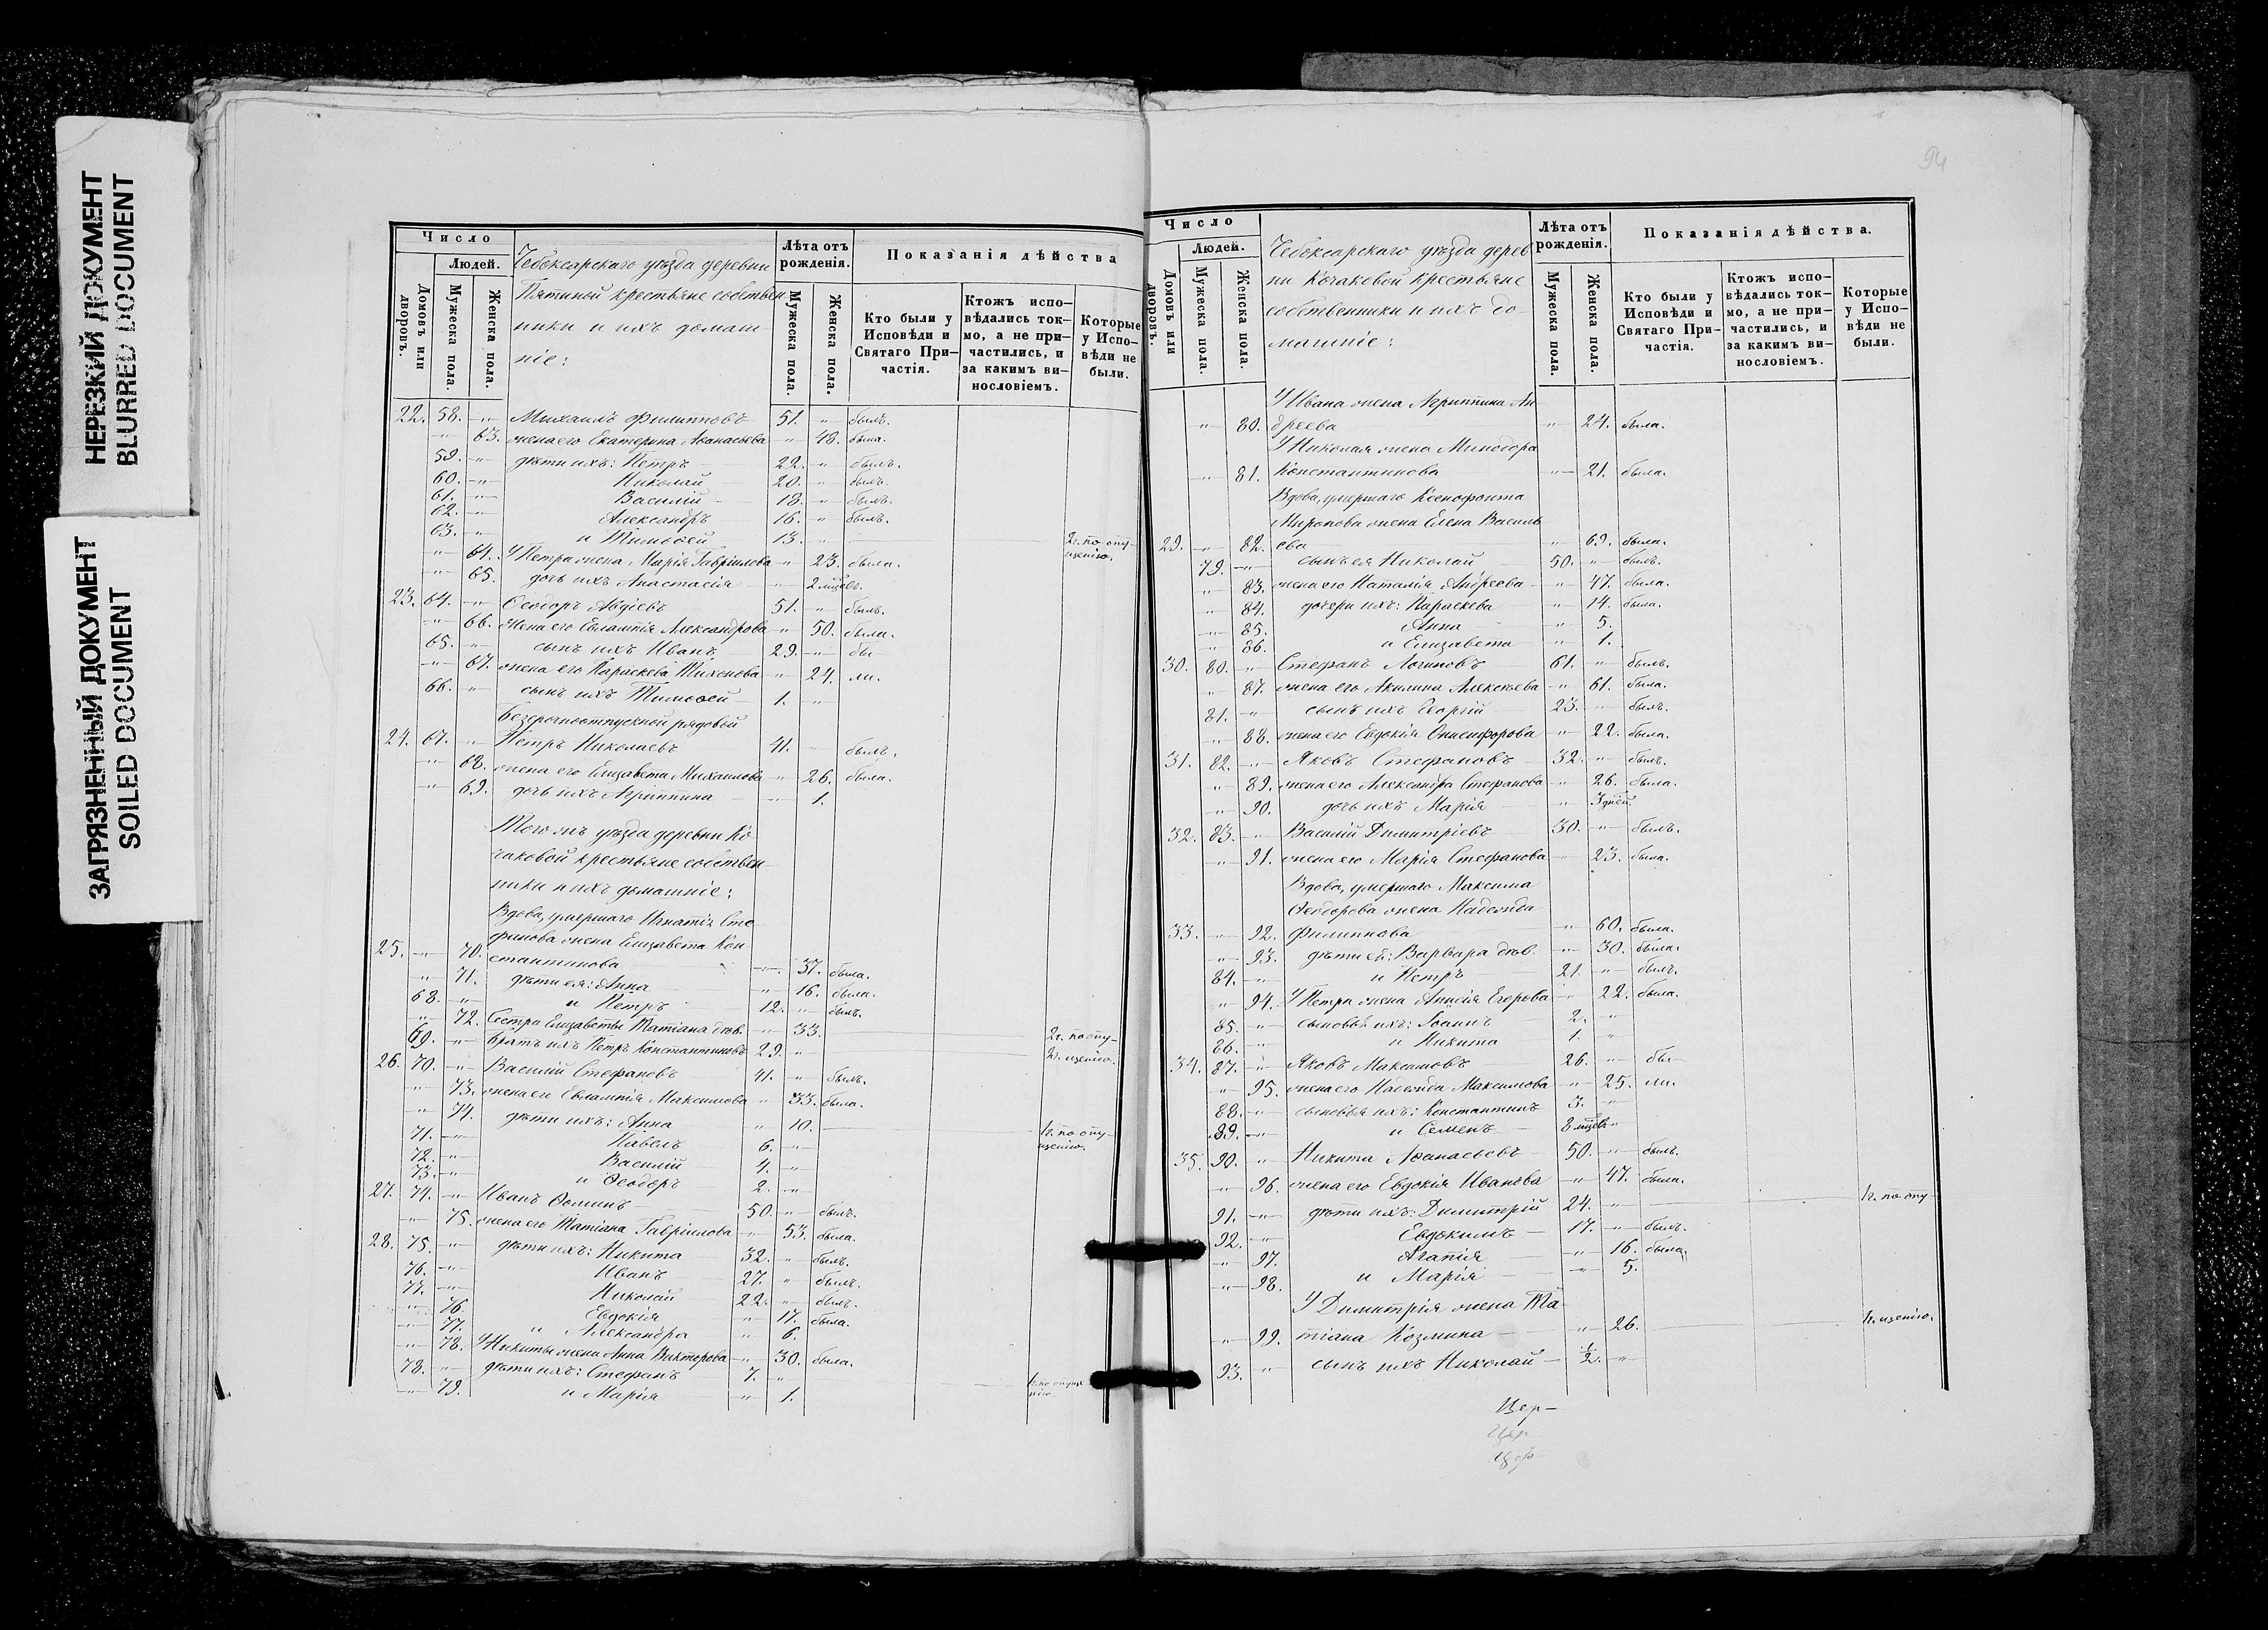 НЕРЕЗКИЙ ДОКУМЕНТ
BLURRED DOCUMENT
ЗАГРЯЗНЕННЫЙ ДОКУМЕНТ
SOILED DOCUMENT
Число
Людей.
Домовъ или дворовъ.
Мужеска пола.
Женска пола.
Чебоксарскаго уѣзда деревни
Пятиной крестьяне собствен
ники и ихъ домаш-
ніе:
Лѣта отъ рожденія.
Мужеска пола.
Женска пола.
Показанія дѣйства
Кто были у Исповѣди и Святаго При-частія.
Ктожъ испо-вѣдались ток-мо, а не при-частились, и за какимъ ви-нословіемъ.
Которые у Испо-вѣди не были.
22. 58. -"- Михаилъ Филипповъ 51. " былъ.
-"- 63. жена его Екатерина Аѳанасьева -"- 48. была.
59. -"- дѣти ихъ: Петръ 22. " былъ.
60. -"- Николай 20. " былъ.
61. -"- Василій 18. " былъ.
62. -"- Александръ 16. " былъ.
63. -"- и Тимоѳей 13. " 2г. по опу-
щенію.
-"- 64. У Петра жена Марія Гавріилова " 23. была.
-"- 65. дочь ихъ Анастасія " 2 мцѣвъ.
23. 64. -"- Ѳеодоръ Авдіевъ 51. " былъ.
-"- 66. жена его Евлампія Александрова " 50. была.
65. -"- сынъ ихъ Иванъ 29. -"- бы
-"- 67. жена его Параскева Тихонова " 24. ли.
66. " сынъ ихъ Тимоѳей 1. -"-
Безсрочноотпускной рядовой
24. 67. -"- Петръ Николаевъ 41. -"- былъ.
-"- 68. жена его Елизавета Михаилова " 26. была.
-"- 69. дочь ихъ Агриппина -"- 1.
Того жъ уѣзда деревни Ко-
чаковой крестьяне собствен
ники и ихъ домашніе:
Вдова, умершаго Игнатія Сте
фанова жена Елизавета Кон
25. -"- 70. стантинова -"- 37. была.
" 71. дѣти ея: Анна " 16. была.
68. -"- и Петръ 12. " былъ.
-"- 72. Сестра Елизаветы Татіана дѣв. " 33. 2г. по опу-
69. -"- братъ ихъ Петръ Константиновъ 29. " 2г. щенію.
26. 70. -"- Василій Стефановъ 41. " былъ.
" 73. жена его Евлампія Максимова " 33. была.
" 74. дѣти ихъ: Анна " 10. 1г. по опу-
щенію.
71. -"- Павелъ 6. "
72. -"- Василій 4. "
73. -"- и Ѳеодоръ 2. -"-
27. 74. -"- Иванъ Ѳоминъ 50. " былъ.
-"- 75. жена его Татіана Гавріилова " 53. была.
28. 75. -"- дѣти ихъ: Никита 32. " былъ.
76. -"- Иванъ 27. " былъ.
77. -"- Николай 22. " былъ.
-"- 76. Евдокія " 17. была.
-"- 77. и Александра " 6.
-"- 78. У Никиты жена Анна Викторова -"- 30. была.
78. " дѣти ихъ: Стефанъ 7. "
-"- 79. и Марія " 1.
94
Число
Людей.
Домовъ или дворовъ.
Мужеска пола.
Женска пола.
Чебоксарскаго уѣзда дерев
ни Кочаковой крестьяне
собственники и ихъ до-
машніе:
Лѣта отъ рожденія.
Мужеска пола.
Женска пола.
Показанія дѣйства.
Кто были у Исповѣди и Святаго При-частія.
Ктожъ испо-вѣдались ток-мо, а не при-частились, и за какимъ ви-нословіемъ.
Которые у Испо-вѣди не были.
У Ивана жена Агриппина Ан-
-"- 80. дреева " 24. была.
У Николая жена Минодора
-"- 81. Константинова -"- 21. была.
Вдова, умершаго Ксенофонта
Миронова жена Елена Василь
29. -"- 82. ева " 69. была.
79. -"- сынъ ея Николай 50. " былъ.
" 83. жена его Наталія Андреева -"- 47. была.
" 84. дочери ихъ: Параскева " 14. была.
-"- 85. Анна -"- 5.
" 86. и Елизавета -"- 1.
30. 80. -"- Стефанъ Логиновъ 61. " былъ.
" 87. жена его Акилина Алексѣева -"- 61. была.
81. -"- сынъ ихъ Георгій 23. -"- былъ.
" 88. жена его Евдокія Онисифорова -"- 22. была.
31. 82. -"- Яковъ Стефановъ 32. " былъ.
" 89. жена его Александра Стефанова -"- 26. была.
" 90. дочь ихъ Марія " 3 дней.
32. 83. -"- Василій Димитріевъ 30. -"- былъ.
" 91. жена его Марія Стефанова -"- 23. была.
Вдова, умершаго Максима
Ѳеодорова жена Надежда
33. -"- 92. Филиппова " 60. была.
-"- 93. дѣти ея: Варвара дѣв. -"- 30. была.
84. -"- и Петръ 21. " былъ.
" 94. У Петра жена Анисія Егорова -"- 22. была.
85. -"- сыновья ихъ: Іоаннъ 2. "
86. -"- и Никита 1. "
34. 87. -"- Яковъ Максимовъ 26. -"- бы-
" 95. жена его Надежда Максимова -"- 25. ли.
88. -"- сыновья ихъ: Константинъ 3. "
89. -"- и Семенъ 8 мцѣвъ "
35. 90. " Никита Аѳанасьевъ 50. -"- былъ.
" 96. жена его Евдокія Иванова -"- 47. была.
91. -"- дѣти ихъ: Димитрій 24. " 1г. по опу
92. -"- Евдокимъ 17. -"- былъ.
-"- 97. Агапія " 16. была,
-"- 98. и Марія -"- 5.
У Димитрія жена Та
-"- 99. тіана Козмина -"- 26. 1г. щенію.
93. " сынъ ихъ Николай ½. -"-
Цер-
Цер